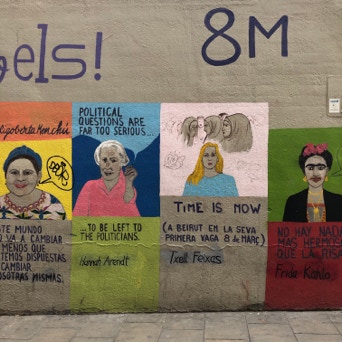 els!
8M
Rigoberta Menchú
ESTE MUNDO
NO VA A CAMBIAR
A MENOS QUE
ESTEMOS DISPUESTAS
A CAMBIAR
NOSOTRAS MISMAS.
POLITICAL
QUESTIONS ARE
FAR TOO SERIOUS...
...TO BE LEFT TO
THE POLITICIANS.
Hannah Arendt
TIME IS NOW
(A BEIRUT EN LA SEVA
PRIMERA VAGA 8 de MARÇ)
Txell Feixas
NO HAY NADA
MAS HERMOSO
QUE LA RISA
Frida Kahlo